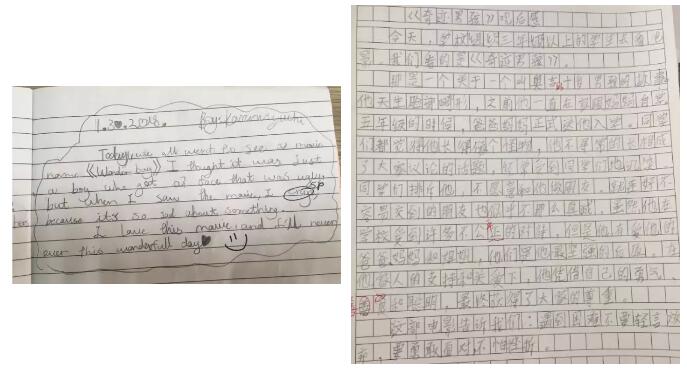 1.30.2018. By:
Today, we all went to see a movie
name 《Wonder boy》 I thought it was just
a boy who got a face that was ugley
but when I saw the movie, I SP
because it's so sad about something.
I love this movie and I'll never
ever this wonderfull day
《奇迹男孩》观后感
今天，学校组织三年级以上的学生去看电
影。我们看的是《奇迹男孩》。
那是一个关于一个叫奥吉的男孩的故事
他天生脸部畸形，之前他一直在家跟妈妈自学
五年级的时候，爸爸妈妈正式送他入学。同学
们都觉得他长得像个怪物，他不寻常的长相成
了大家议论的话题，好多
同学们排斥他，不愿意和他做朋友。
容易交到的朋友他们
学校受到许多不公的对待，但是他有爱他的
爸爸妈妈和姐姐，他们是他最坚强的后盾。在
他家人的支持和关爱下，他凭借自己的勇气、
善良和聪明，最终获得了大家的尊重。
这部电影告诉我们：遇到困难不要轻言放
弃，要勇敢面对不怕挫折。